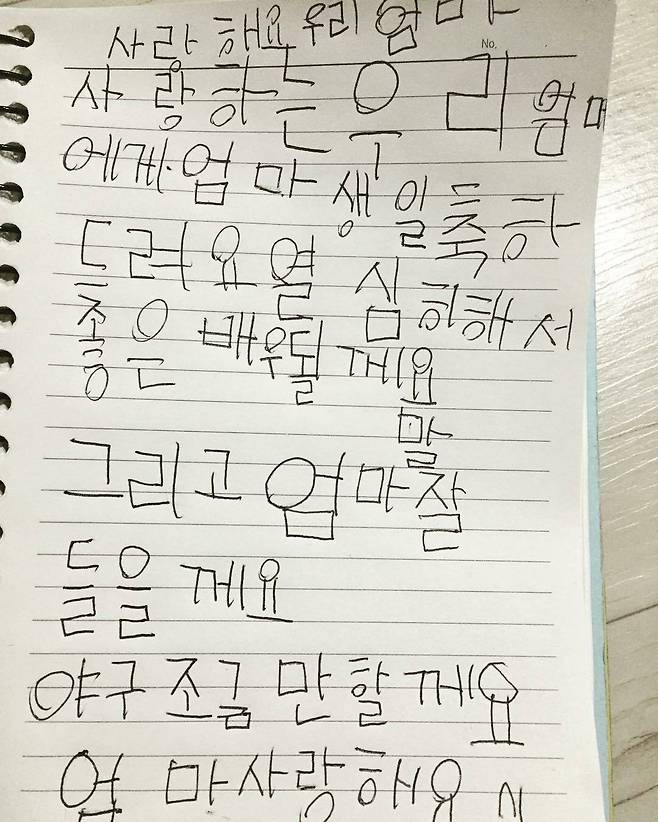 사랑해요우리엄마
No.
사랑하는 우리 엄마
에게.엄마 생일축하
드려요 열심히해서
좋은 배우될께요
말
그리고 엄마잘
들을 께요
야구 조금만할께요
엄마사랑해요